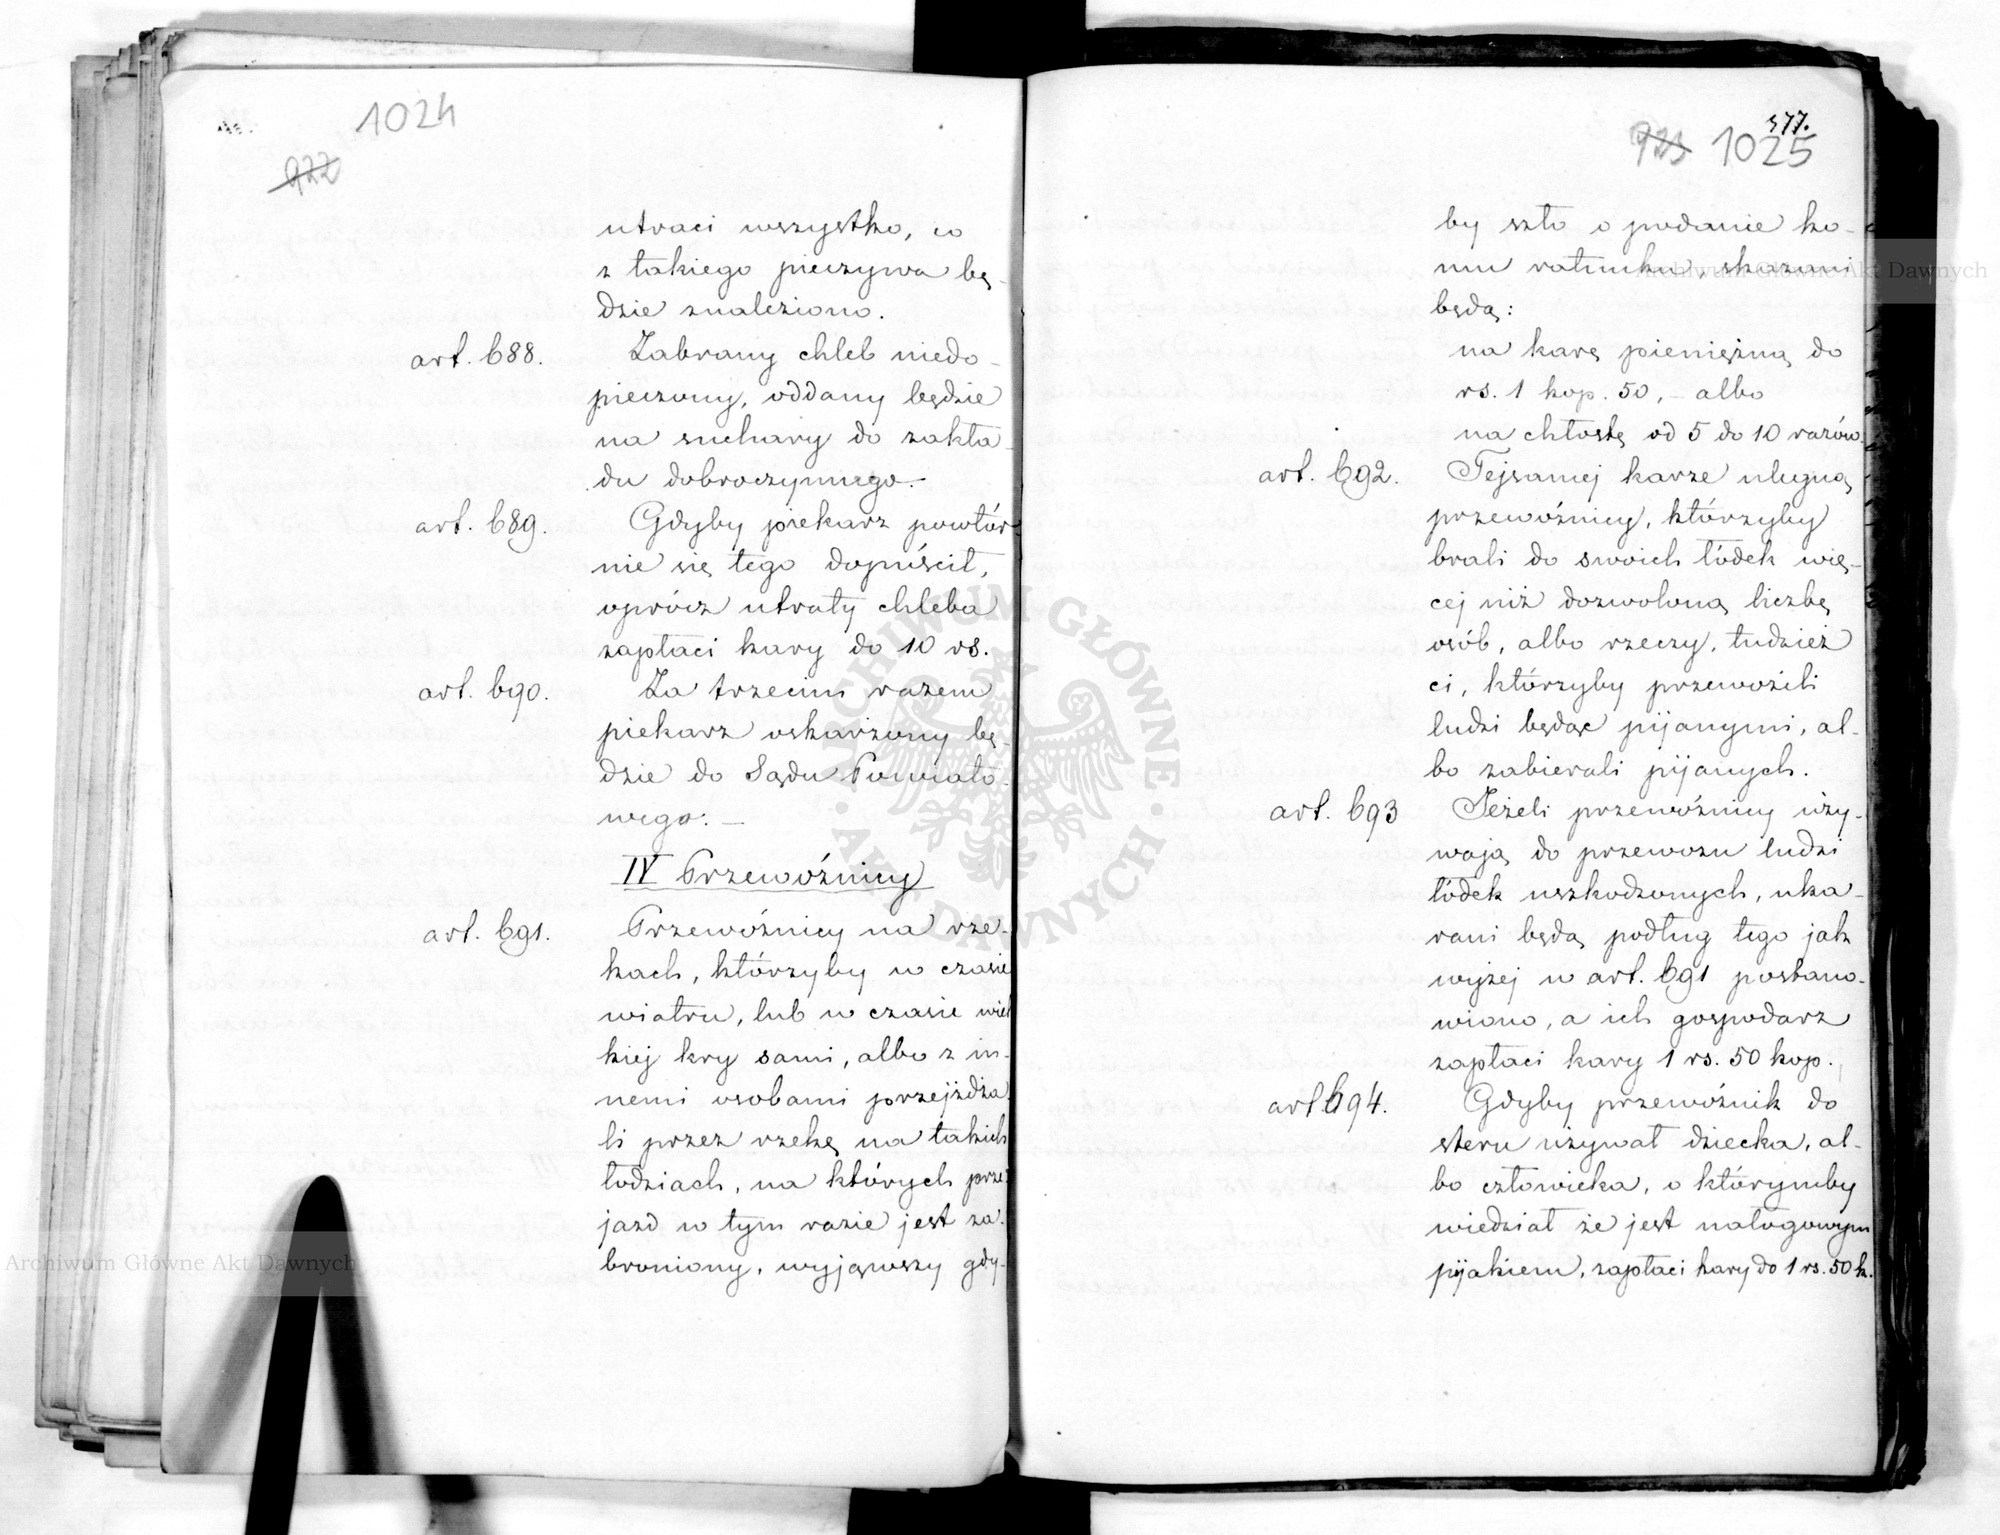 1024
922
utraci wszystko, co
z takiego pieczywa bę-
dzie znaleziono.
art. 688. Zabrany chleb niedo-
pieczony, oddany będzie
na suchary do zakła-
du dobroczynnego.-
art. 689. Gdyby piekarz powtór-
nie się tego dopuścił,
oprócz utraty chleba
zapłaci kary do 10 rs.
art. 690. Za trzecim razem
piekarz oskarżony bę-
dzie do Sądu Powiato-
wego. -
IV Przewóźnicy
art. 691. Przewóźnicy na rze-
kach, którzyby w czasie
wiatru, lub w czasie wiel
kiej kry sami, albo z in-
nemi osobami przejżdża-
li przez rzekę na takich
łodziach, na których prze
jazd w tym razie jest za-
broniony, wyjąwszy gdy-
377.
923 1025
by szło o podanie ko-
mu ratunku, skazani
będą:
na karę pieniężną do
rs. 1 kop. 50, - albo
na chłostę od 5 do 10 razów.
art. 692. Tejsamej karze ulegną
przewóźnicy, którzyby
brali do swoich łódek wię-
cej niż dozwoloną liczbę
osób, albo rzeczy, tudzież
ci, którzyby przewozili
ludzi będąc pijanymi, al-
bo zabierali pijanych.
art. 693 Jeżeli przewóźnicy uży-
wają do przewozu ludzi
łódek uszkodzonych, uka-
rani będą podług tego jak
wyżej w art. 691 postano-
wiono, a ich gospodarz
zapłaci kary 1 rs. 50 kop.
art 694. Gdyby przewóźnik do
steru używał dziecka, al-
bo człowieka, o którymby
wiedział że jest nałogowym
pijakiem, zapłaci kary do 1 rs. 50 k.
ARCHIWUM GŁÓWNE
AKT DAWNYCH
Archiwum Główne Akt Dawnych
Archiwum Główne Akt Dawnych